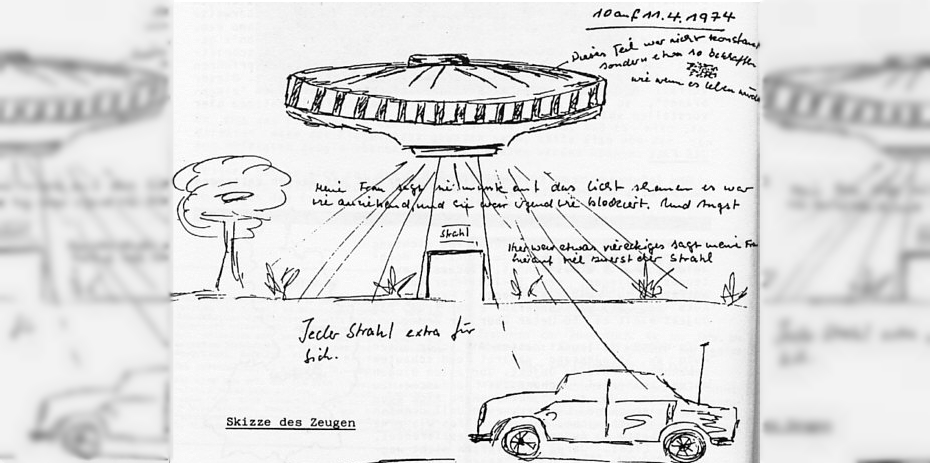 10 auf 11.4.1974
Dieser Teil war nicht konstant
sondern etwa so beschaffen
wie wenn es leben würde
Meine Frau sagt sie musste auf das Licht schauen es war
wie anziehend, und sie war irgendwie blockiert. Und Angst
Strahl
Hier war etwas viereckiges sagt meine Frau
hierauf fiel zuerst der Strahl
Jeder Strahl extra für
sich.
Skizze des Zeugen